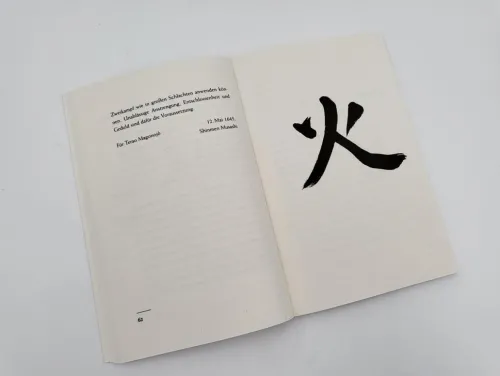 Zweikampf wie in großen Schlachten anwenden kön-
nen. Unablässige Anstrengung, Entschlossenheit und
Geduld sind dafür die Voraussetzung.
12. Mai 1645,
Für Terao Magonojō
Shinmen Musashi
62
火